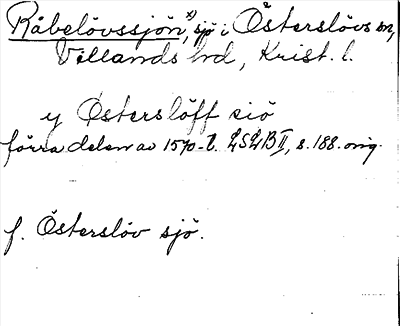 Råbelövssjön x), sjö i Österslövs sn,
Villands hd, Krist. l.
y Österslöff siö
förra delen av 1570-t. LSLB II, s. 188. orig.
f. Österslöv sjö.